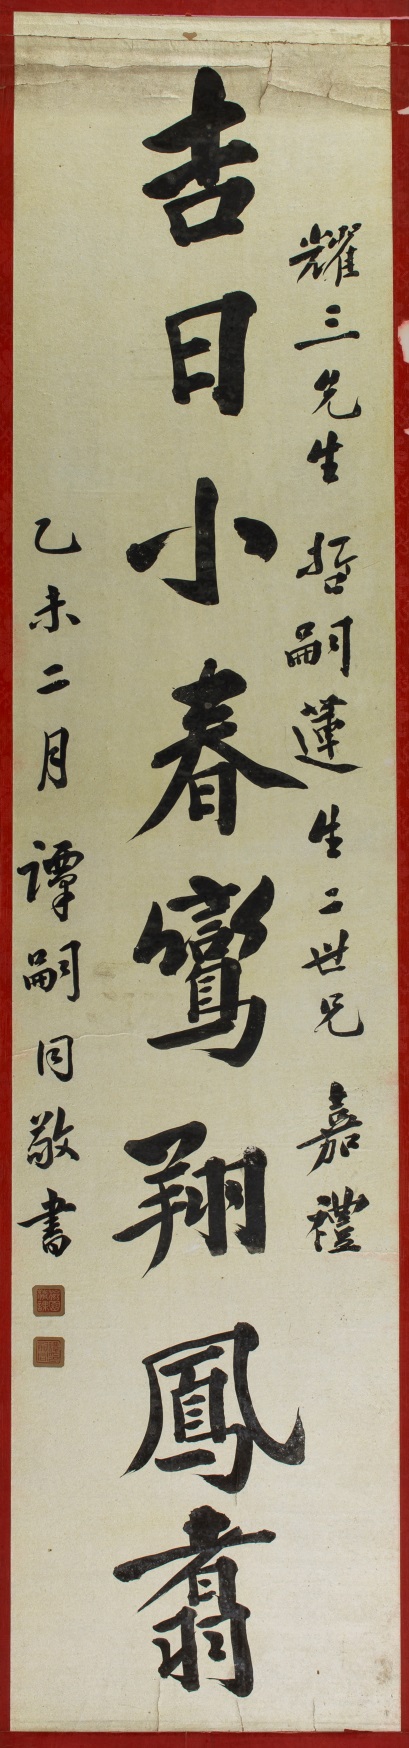 耀三先生 哲嗣蓮生二世兄 嘉禮
吉日小春鸞翔鳳翥
乙未二月 譚嗣同敬書